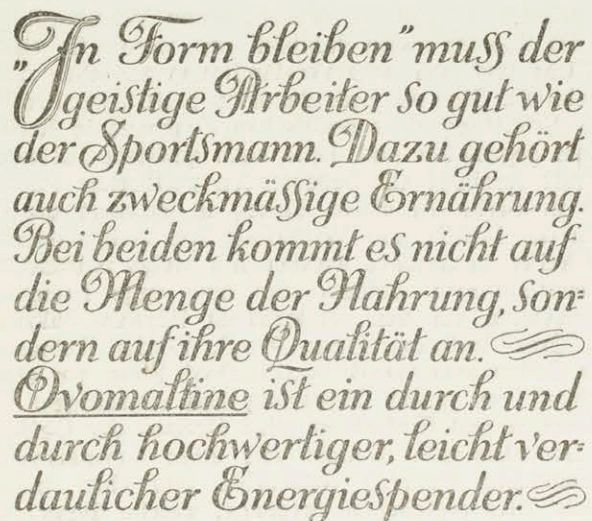 „In Form bleiben” muss der
geistige Arbeiter so gut wie
der Sportsmann. Dazu gehört
auch zweckmässige Ernährung.
Bei beiden kommt es nicht auf
die Menge der Nahrung, son=
dern auf ihre Qualität an.
Ovomaltine ist ein durch und
durch hochwertiger, leicht ver=
daulicher Energiespender.